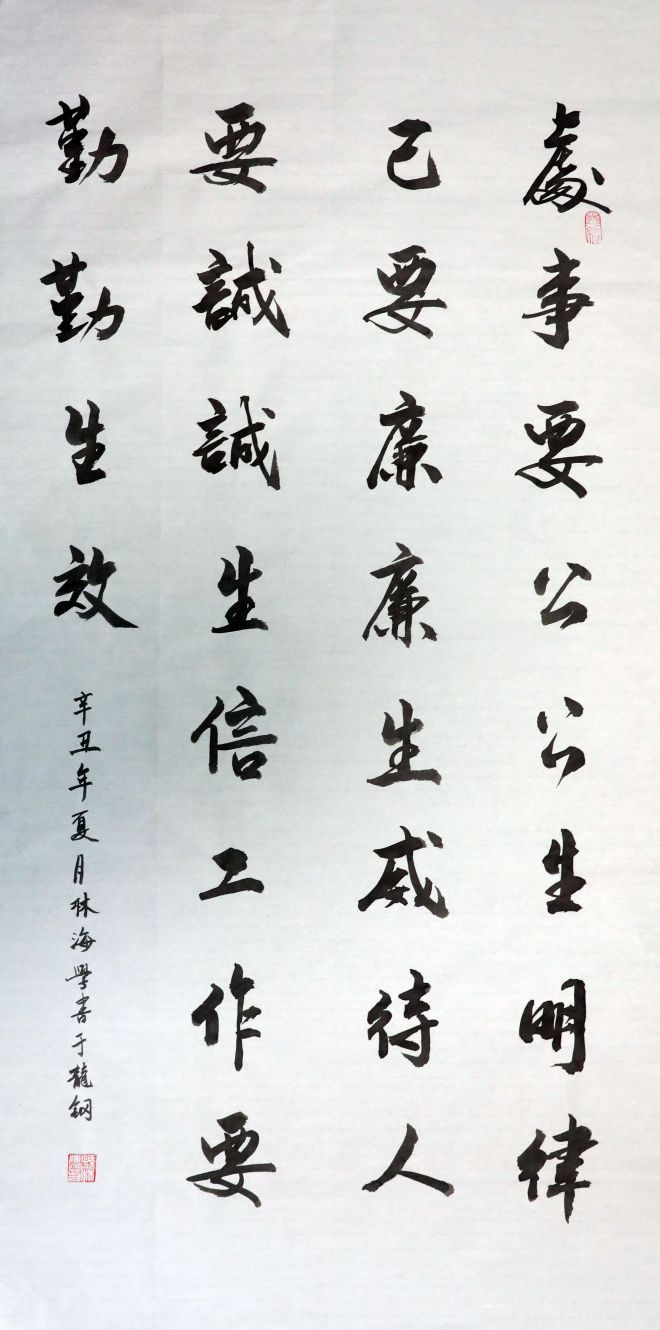 處事要公公生明律
己要廉廉生威待人
要誠誠生信工作要
勤勤生效
辛丑年夏月林海學書于龍鋼